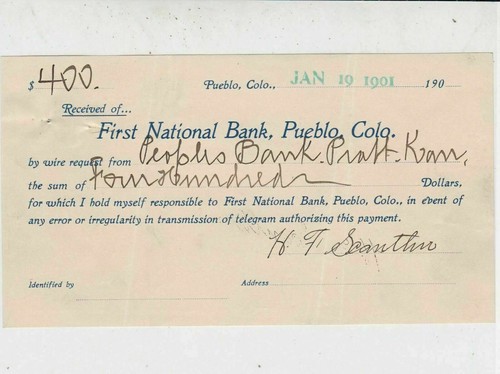 $400. Pueblo, Colo., JAN 19 1901 190
Received of...
First National Bank, Pueblo, Colo.
by wire request from Peoples Bank. Pratt. Kan,
the sum of Four Hundred Dollars,
for which I hold myself responsible to First National Bank, Pueblo, Colo., in event of
any error or irregularity in transmission of telegram authorizing this payment.
H. F. Scantlin
Identified by Address